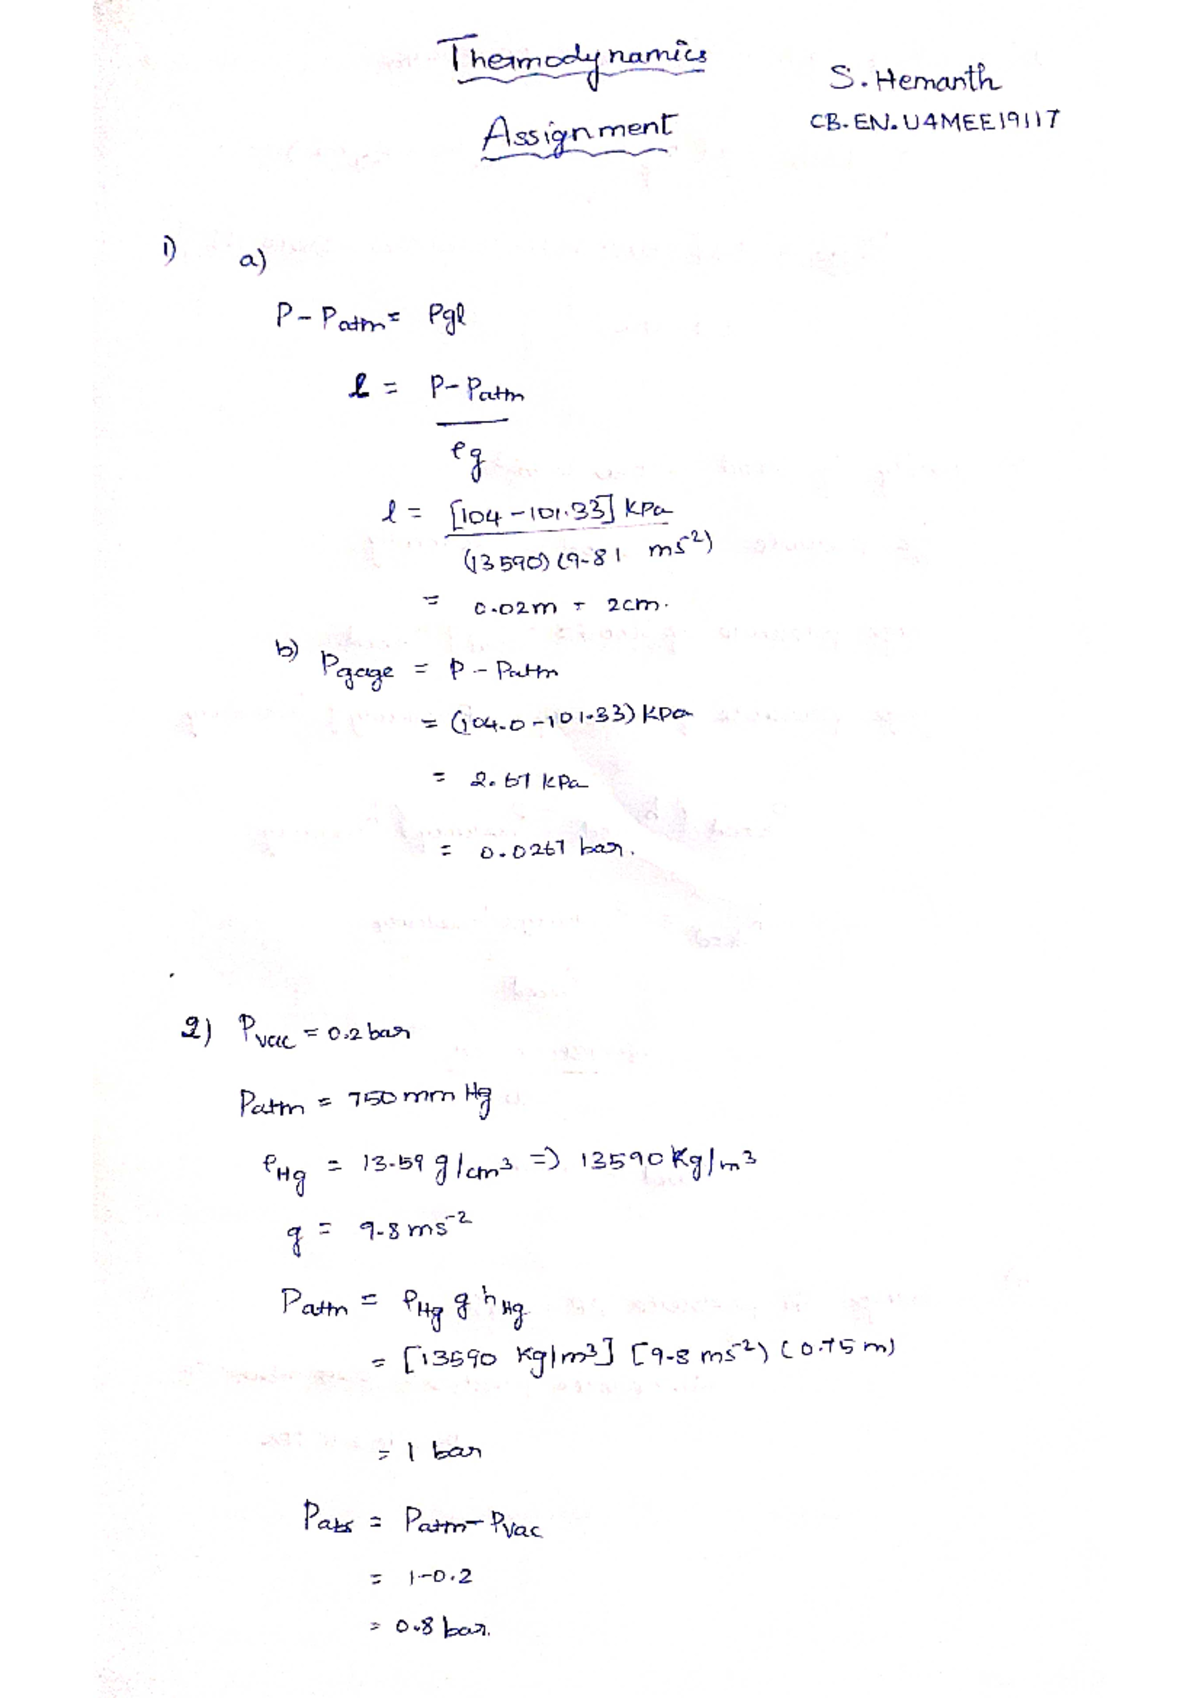 Thermodynamics
S. Hemanth
Assignment
CB.EN.U4MEE19117
1) a)
P - Patm = ρgl
l = P - Patm
ρg
l = [104 - 101.33] KPa
(13590) (9.81 ms⁻²)
= 0.02m = 2cm.
b) Pgage = P - Patm
= (104.0 - 101.33) KPa
= 2.67 KPa
= 0.0267 bar.
2) Pvac = 0.2 bar
Patm = 750 mm Hg
ρHg = 13.59 g/cm³ => 13590 Kg/m³
g = 9.8 ms⁻²
Patm = ρHg g hHg
= [13590 Kg/m³] [9.8 ms⁻²) (0.75 m)
= 1 bar
Pabs = Patm - Pvac
= 1 - 0.2
= 0.8 bar.